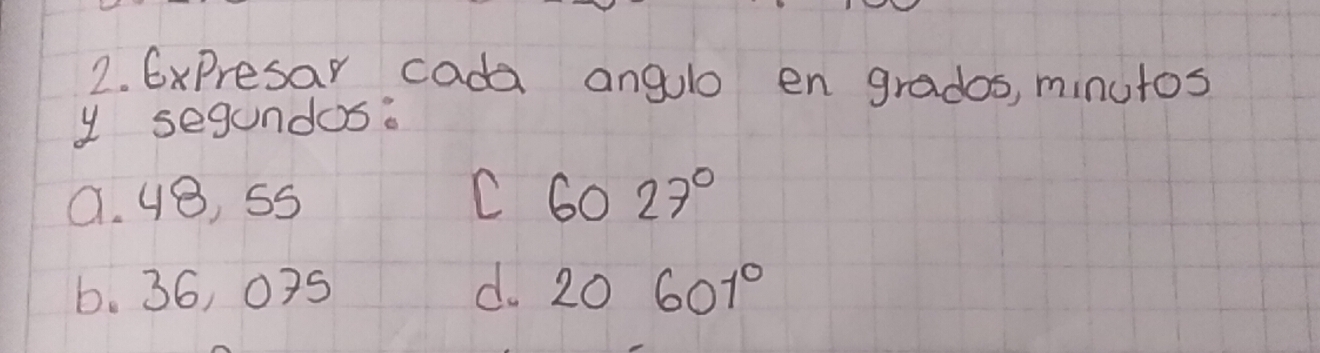 2. Expresar cada angulo en grados, minutos
y segundos:
a. 48, 55 C 60 27°
b. 36, 075 d. 20 601°